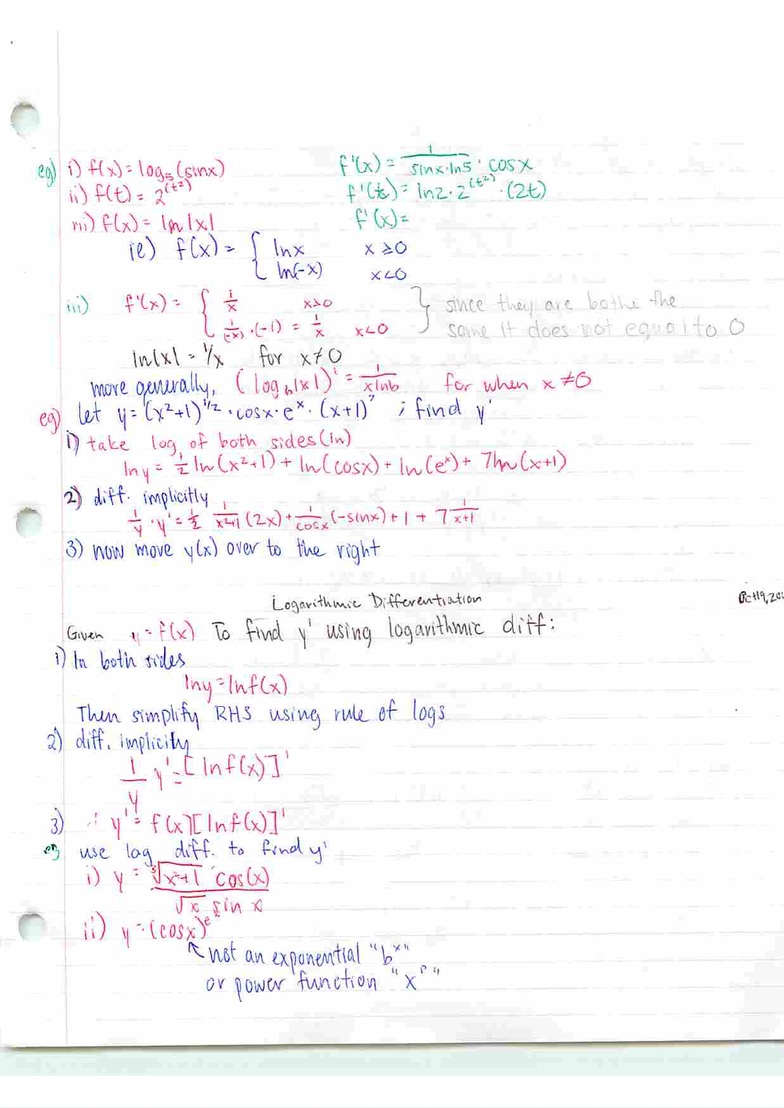 eg) i) f(x) = log₅(sinx) f'(x) = 1/(sinx·ln5) · cosx
ii) f(t) = 2^(t²) f'(t) = ln2·2^(t²)·(2t)
iii) f(x) = ln|x| f'(x) =
ie) f(x) = { lnx x≥0
ln(-x) x<0
iii) f'(x) = { 1/x x>0 } since they are bothe the
1/(-x)·(-1) = 1/x x<0 same it does not equal to 0
ln|x| = 1/x for x≠0
more generally, (log_b|x|)' = 1/(xlnb) for when x≠0
eg) let y = (x²+1)^(1/2)·cosx·e^x·(x+1)^7 ; find y'
1) take log of both sides (ln)
lny = 1/2 ln(x²+1) + ln(cosx) + ln(e^x) + 7ln(x+1)
2) diff. implicitly
1/y·y' = 1/2 1/(x²+1) (2x) + 1/cosx (-sinx) + 1 + 7 1/(x+1)
3) now move y(x) over to the right
Logarithmic Differentiation Oct 19, 20
Given y = f(x) To find y' using logarithmic diff:
1) ln both sides
lny = lnf(x)
Then simplify RHS using rule of logs
2) diff. implicitly
1/y y' = [lnf(x)]'
3) ∴ y' = f(x)[lnf(x)]'
eg use log diff. to find y'
i) y = ∛(x²+1) cos(x) / √x sin x
ii) y = (cosx)^e^x
↖ not an exponential "b^x"
or power function "x^n"